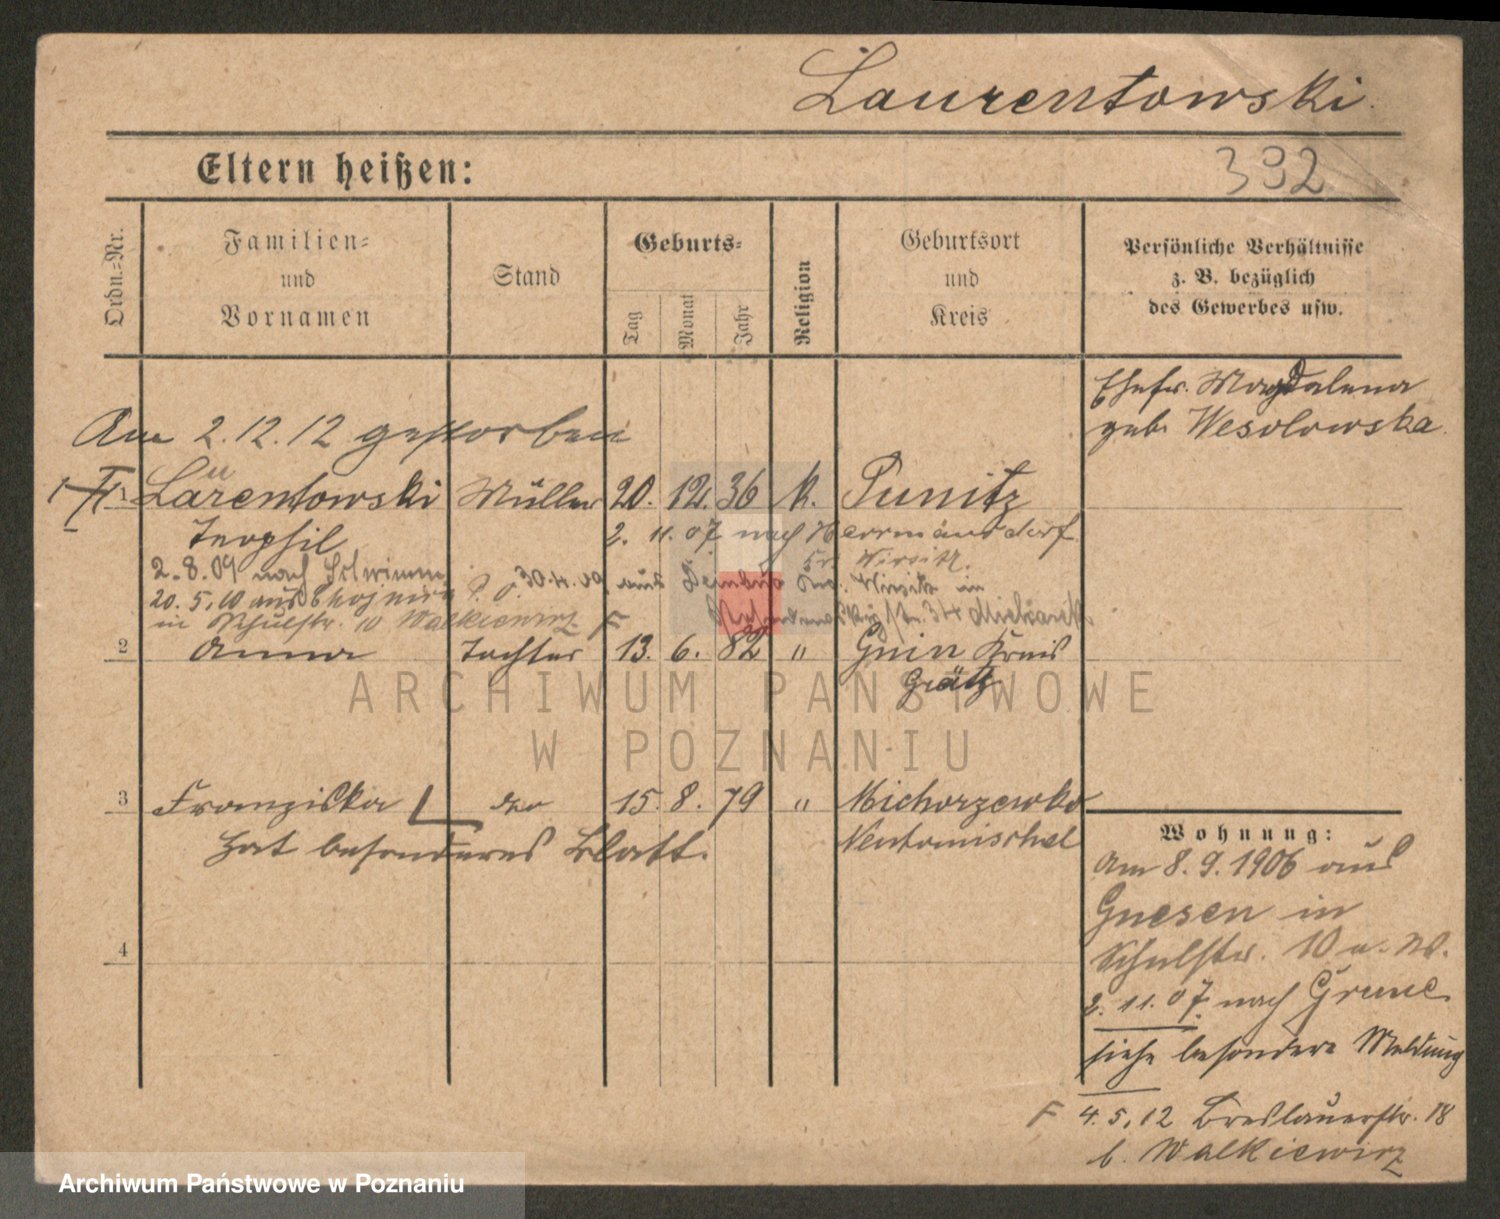 Laurentowski.
Eltern heißen:
392
Ordn.-Nr.
Familien-
und
Vornamen
Stand
Geburts-
Tag
Monat
Jahr
Religion
Geburtsort
und
Kreis
Persönliche Verhältnisse
z. B. bezüglich
des Gewerbes usw.
Ehefr. Magdalena
geb. Wesolowska.
Am 2.12.12 gestorben
1 Laurentowski Müller 20. 12. 36 k. Punitz
Teophil
2. 11. 07 nach Herrmannsdorf
Kr. Wirsitz.
2.8.09 nach
30.4.09 aus Kr. Wirsitz in
20.5.10 aus
34
in Schulstr. 10 Walkiewicz F
2 Anna Tochter 13. 6. 82 " Gnin Kreis
Grätz
3 Franziska dto 15. 8. 79 " Michorzewko
Neutomischel
Hat besonderes Blatt.
4
Wohnung:
Am 8.9.1906 aus
Gnesen in
Schulstr. 10 a. W.
2. 11. 07 nach
siehe besondere Meldung
F 4.5.12 Breslauerstr. 18
b. Walkiewicz
ARCHIWUM PAŃSTWOWE
W POZNANIU
Archiwum Państwowe w Poznaniu